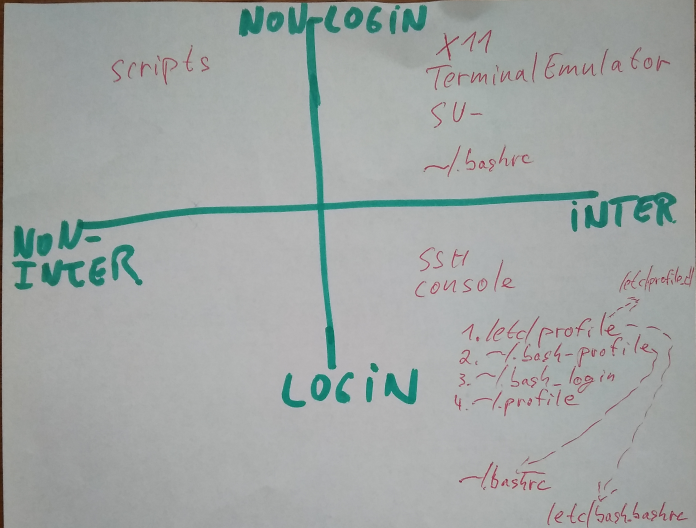 NON-LOGIN
scripts
X11
Terminal Emulator
SU-
~/.bashrc
NON-
INTER
INTER
SSH
console
/etc/profile.d
1. /etc/profile
2. ~/.bash-profile
3. ~/.bash_login
4. ~/.profile
LOGIN
~/.bashrc
/etc/bash.bashrc